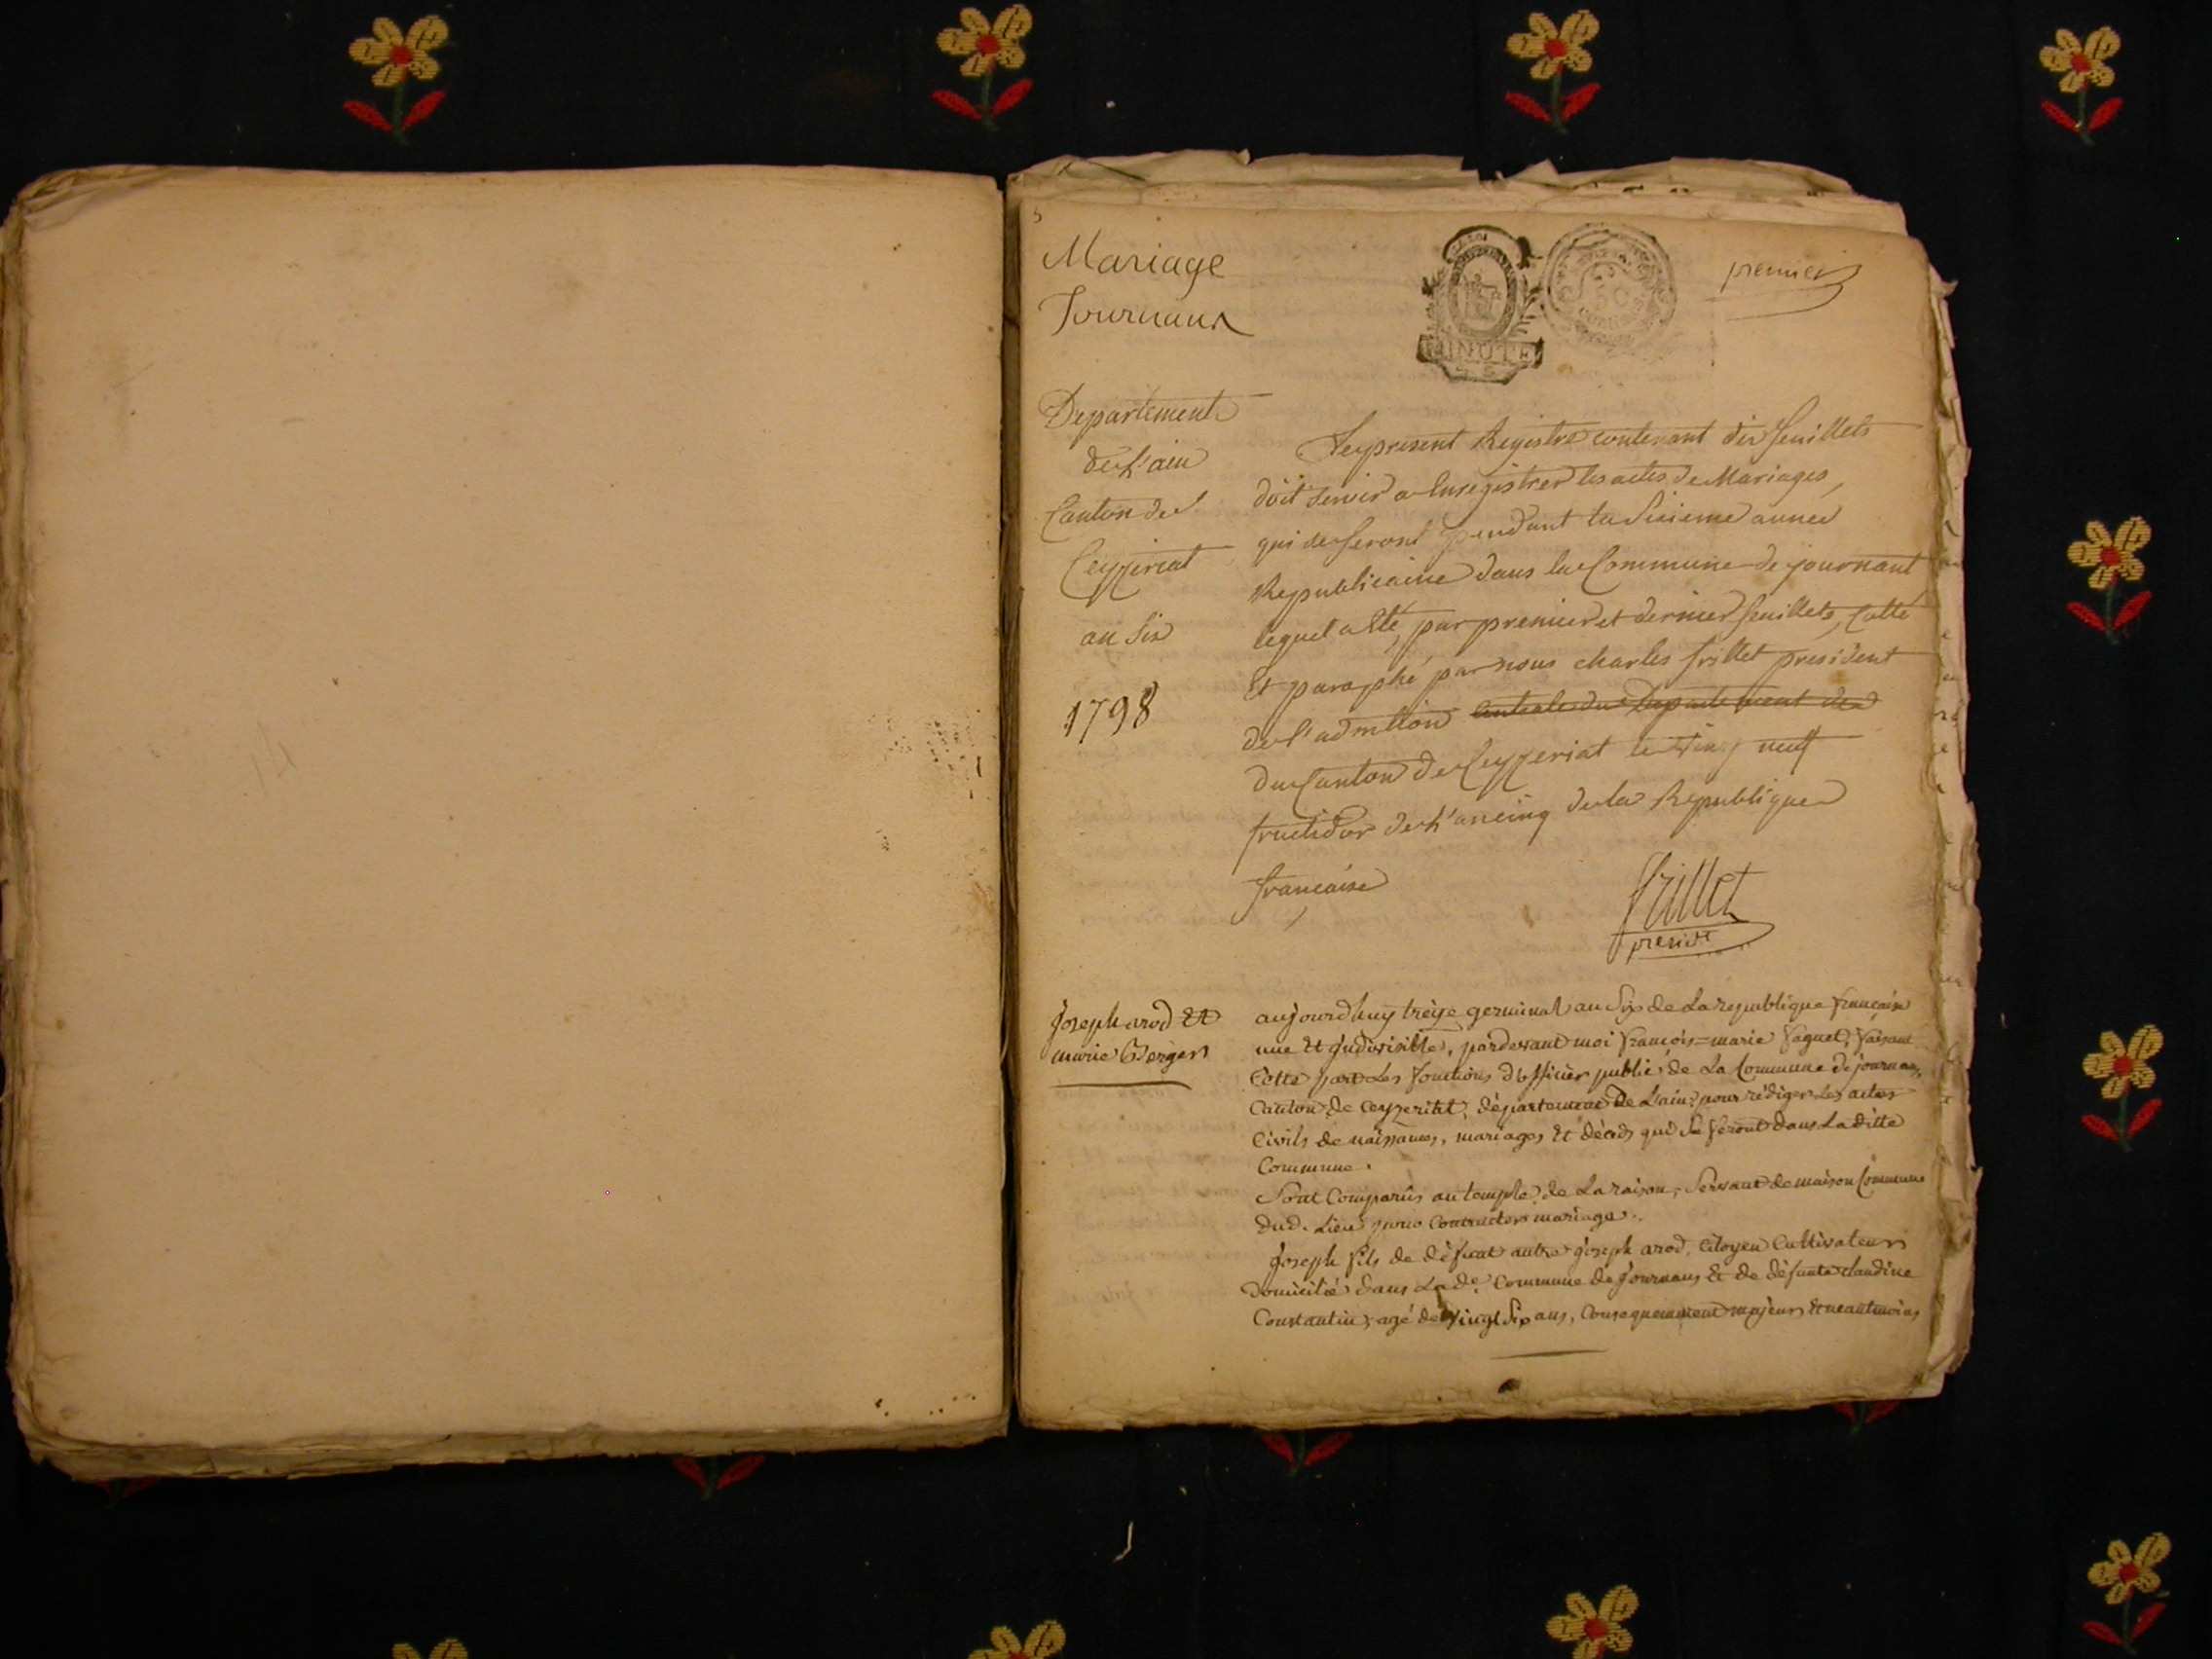 Mariage
Journaux
MINUTE
premier
Departement
de L'ain
Canton de
Ceyzeriat
an Six
1798
Le present Registre contenant dix feuillets
doit servir a Enregistrer les actes de Mariages,
qui se feront pendant la Sixieme année
Republicaine dans la Commune de journant
lequel a Eté, par premier et dernier feuillets, Cotté
Et paraphé par nous charles frillet president
de l'admtion centrale du Departement de
du Canton de Ceyzeriat le Vingt neuf
fructidor de L'an cinq de la Republique
francaise
frillet
presidt
Joseph arod Et
marie Berger
aujourdhuy treize germinal an Six de La republique francaise
une Et indivisible, pardevant moi françois=marie faguet, faisant
Cette part Les fonctions d'officier public de La Commune de journans,
Canton de Ceyzeriat, département de L'ain, pour rédiger Les actes
Civils de naissances, mariages Et décéds qui Se feront dans Laditte
Commune.
Sont Comparûs au temple de La raison, Servant de maison Commune
dud. Lieu pour Contracter mariage.
Joseph fils de défunt autre joseph arod, Citoyen Cultivateur
Domicilié dans Lade. Commune de journans Et de défunte claudine
Constantin, agé de Vingt Six ans, Consequemment majeur Et neantmoins